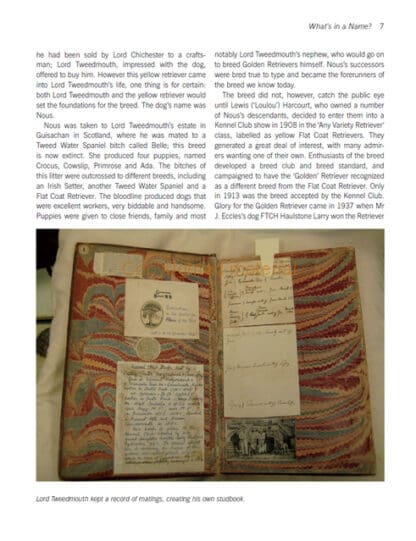 What's in a Name? 7
he had been sold by Lord Chichester to a crafts-
man; Lord Tweedmouth, impressed with the dog,
offered to buy him. However this yellow retriever came
into Lord Tweedmouth's life, one thing is for certain:
both Lord Tweedmouth and the yellow retriever would
set the foundations for the breed. The dog's name was
Nous.
Nous was taken to Lord Tweedmouth's estate in
Guisachan in Scotland, where he was mated to a
Tweed Water Spaniel bitch called Belle; this breed
is now extinct. She produced four puppies, named
Crocus, Cowslip, Primrose and Ada. The bitches of
this litter were outcrossed to different breeds, including
an Irish Setter, another Tweed Water Spaniel and a
Flat Coat Retriever. The bloodline produced dogs that
were excellent workers, very biddable and handsome.
Puppies were given to close friends, family and most
notably Lord Tweedmouth's nephew, who would go on
to breed Golden Retrievers himself. Nous's successors
were bred true to type and became the forerunners of
the breed we know today.
The breed did not, however, catch the public eye
until Lewis ('Loulou') Harcourt, who owned a number
of Nous's descendants, decided to enter them into a
Kennel Club show in 1908 in the 'Any Variety Retriever'
class, labelled as yellow Flat Coat Retrievers. They
generated a great deal of interest, with many admir-
ers wanting one of their own. Enthusiasts of the breed
developed a breed club and breed standard, and
campaigned to have the 'Golden' Retriever recognized
as a different breed from the Flat Coat Retriever. Only
in 1913 was the breed accepted by the Kennel Club.
Glory for the Golden Retriever came in 1937 when Mr
J. Eccles's dog FTCH Haulstone Larry won the Retriever
Lord Tweedmouth kept a record of matings, creating his own studbook.